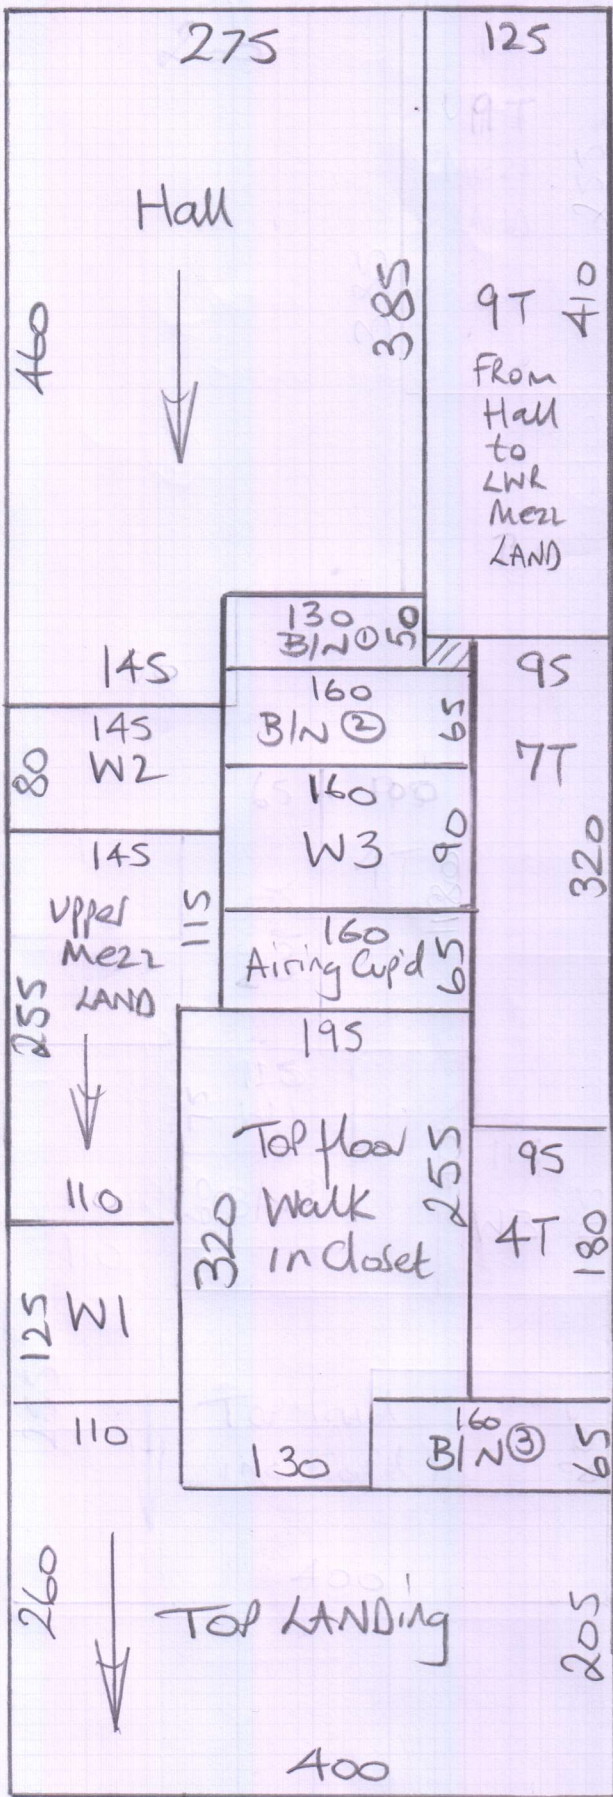 275
125
Hall
460
385
9T
410
FROM
Hall
to
LWR
Mezz
LAND
130
B/N ①
50
145
160
B/N ②
65
95
7T
320
145
W2
80
160
W3
90
145
Upper
Mezz
LAND
115
255
110
160
Airing Cup'd
65
195
Top floor
Walk
in Closet
255
320
95
4T
180
125
W1
110
130
160
B/N ③
65
260
TOP LANDING
205
400